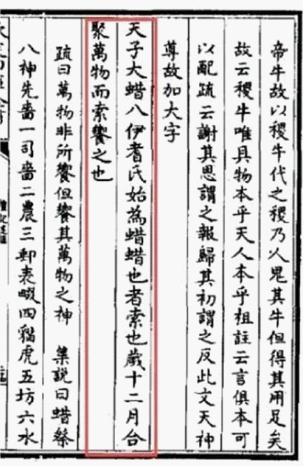 帝牛故以稷牛代之稷乃人鬼其牛但得具用足矣
故云稷牛唯具物本乎天人本乎祖註云言俱本可
以配疏云謝其恩謂之報歸其初謂之反此文天神
尊故加大字
天子大蜡八伊耆氏始為蜡蜡也者索也歲十二月合
聚萬物而索饗之也
疏曰萬物非所饗但饗其萬物之神 集說曰蜡祭
八神先嗇一司嗇二農三郵表畷四貓虎五坊六水